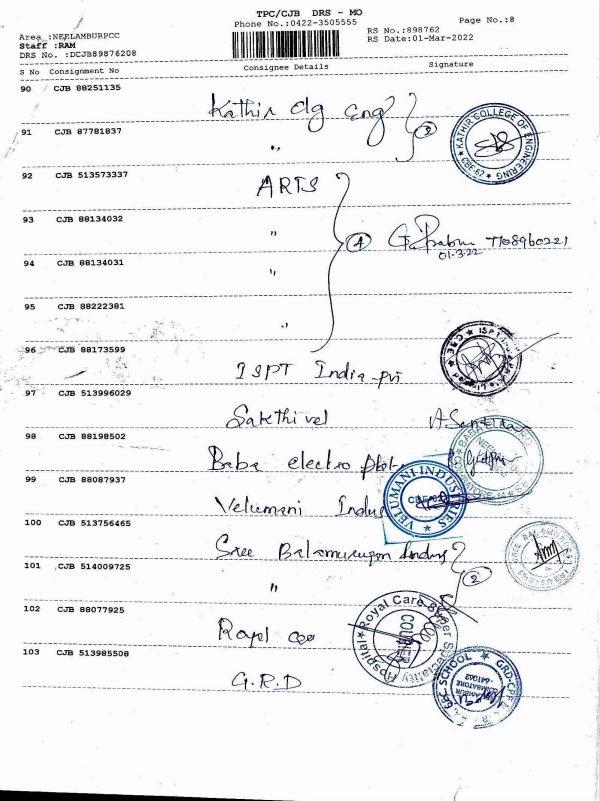 TPC/CJB DRS - MO
Phone No.:0422-3505555
Page No.:8
Area :NEELAMBURPCC
RS No.:898762
Staff :RAM
RS Date:01-Mar-2022
DRS No. :DCJB89876208
S No Consignment No Consignee Details Signature
90 CJB 88251135
Kathir clg Eng
2
KATHIR COLLEGE OF ENGINEERING
CBE-62
91 CJB 87781837
"
92 CJB 513573337
ARTS
93 CJB 88134032
"
4
7708960221
01.3.22
94 CJB 88134031
"
95 CJB 88222381
"
96 CJB 88173599
ISPT India pvt
97 CJB 513996029
Sakthivel
98 CJB 88198502
Baba electro
99 CJB 88087937
Velumani Indus
VELUMANI INDUSTRIES
CBE-62
100 CJB 513756465
Sree Balamurugan
2
101 CJB 514009725
"
102 CJB 88077925
Royal care
Royal Care Super Speciality Hospital
COURIER
103 CJB 513985508
G.R.D
SCHOOL
GRD-CPF
COIMBATORE
-641062